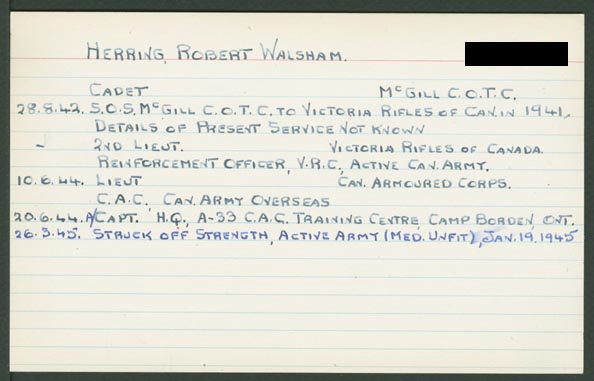 HERRING, ROBERT WALSHAM.
CADET McGILL C.O.T.C.
28.8.42. S.O.S. McGILL C.O.T.C. TO VICTORIA RIFLES OF CAN. IN 1941.
DETAILS OF PRESENT SERVICE NOT KNOWN
- 2ND LIEUT. VICTORIA RIFLES OF CANADA.
REINFORCEMENT OFFICER, V.R.C., ACTIVE CAN. ARMY.
10.6.44. LIEUT CAN. ARMOURED CORPS.
C.A.C., CAN. ARMY OVERSEAS
20.6.44. A/CAPT. H.Q., A-33 C.A.C. TRAINING CENTRE, CAMP BORDEN, ONT.
26.3.45. STRUCK OFF STRENGTH, ACTIVE ARMY (MED. UNFIT), JAN. 19. 1945